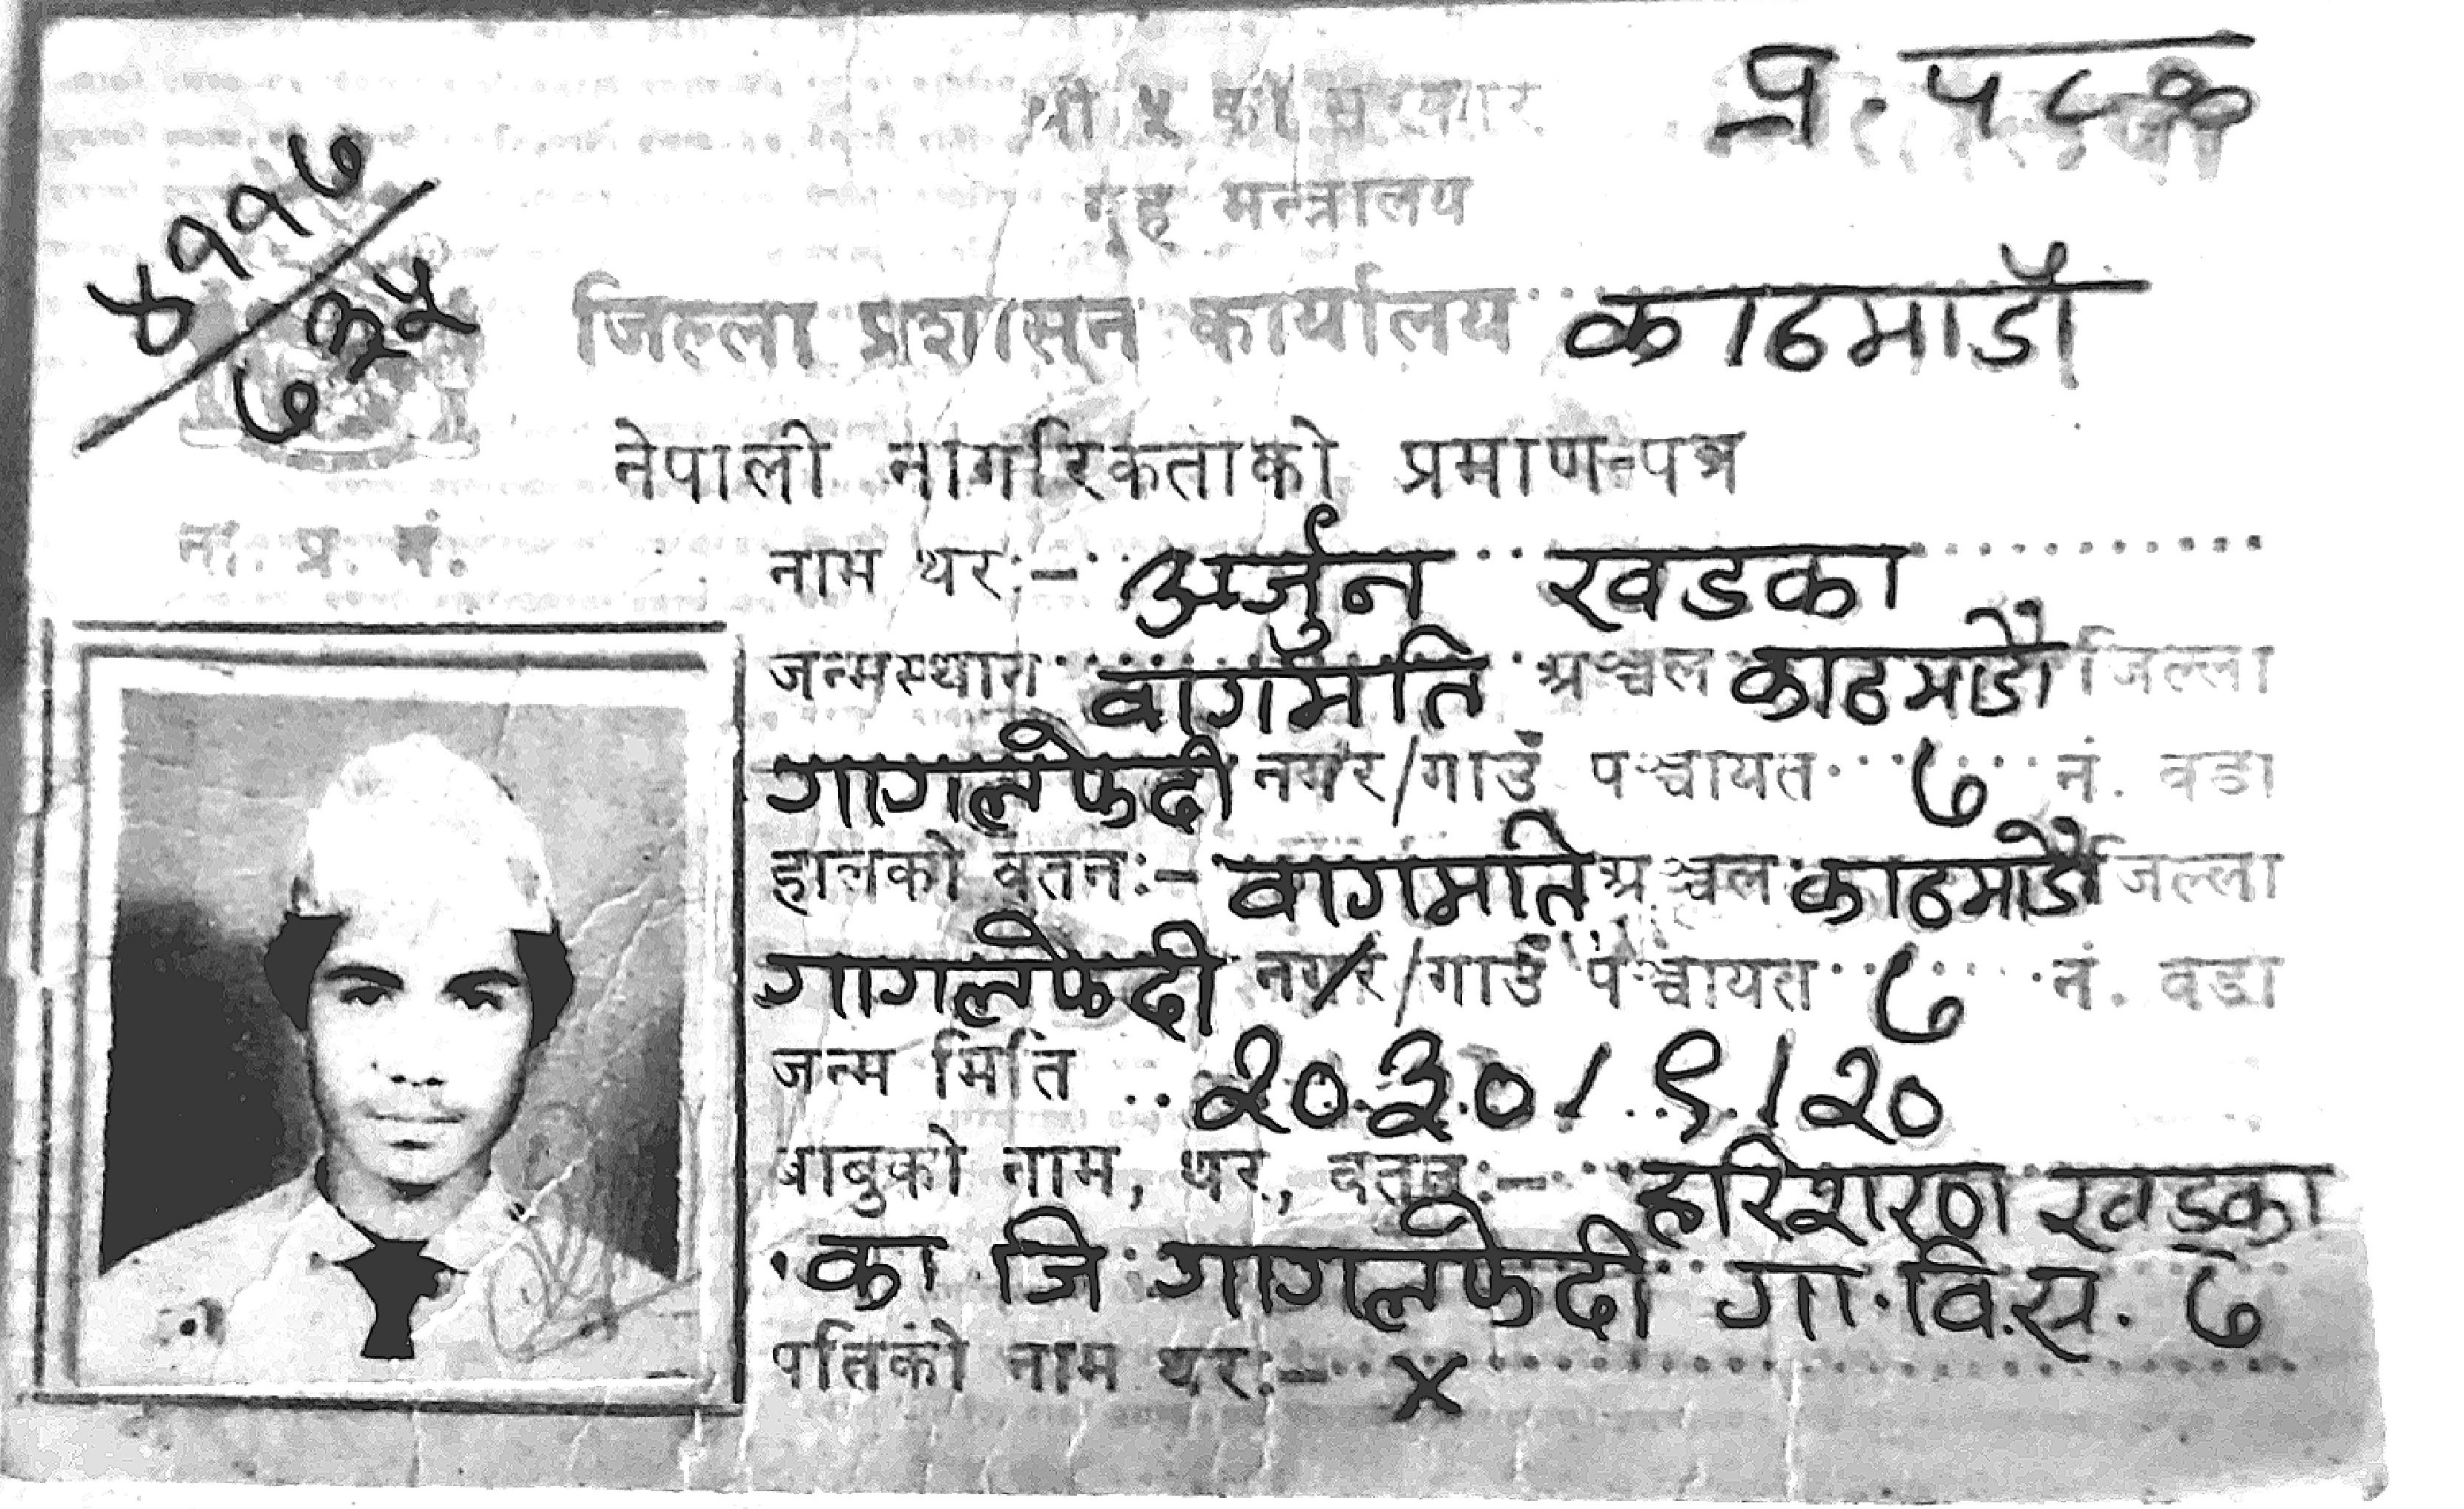 प्र. ५८७
श्री ५ को सरकार
गृह मन्त्रालय
जिल्ला प्रशासन कार्यालय काठमाडौं
नेपाली नागरिकताको प्रमाण-पत्र
ना. प्र. नं.
नाम थर:- अर्जुन खडका
जन्मस्थान वागमति अञ्चल काठमाडौं जिल्ला
गागलफेदी नगर/गाउँ पञ्चायत ७ नं. वडा
हालको वतन:- वागमति अञ्चल काठमाडौं जिल्ला
गागलफेदी नगर/गाउँ पञ्चायत ७ नं. वडा
जन्म मिति २०३०/९/२०
बाबुको नाम, थर, वतन:- हरिशरण खड्का
का जि गागलफेदी गा.वि.स. ७
पतिको नाम थर:- x